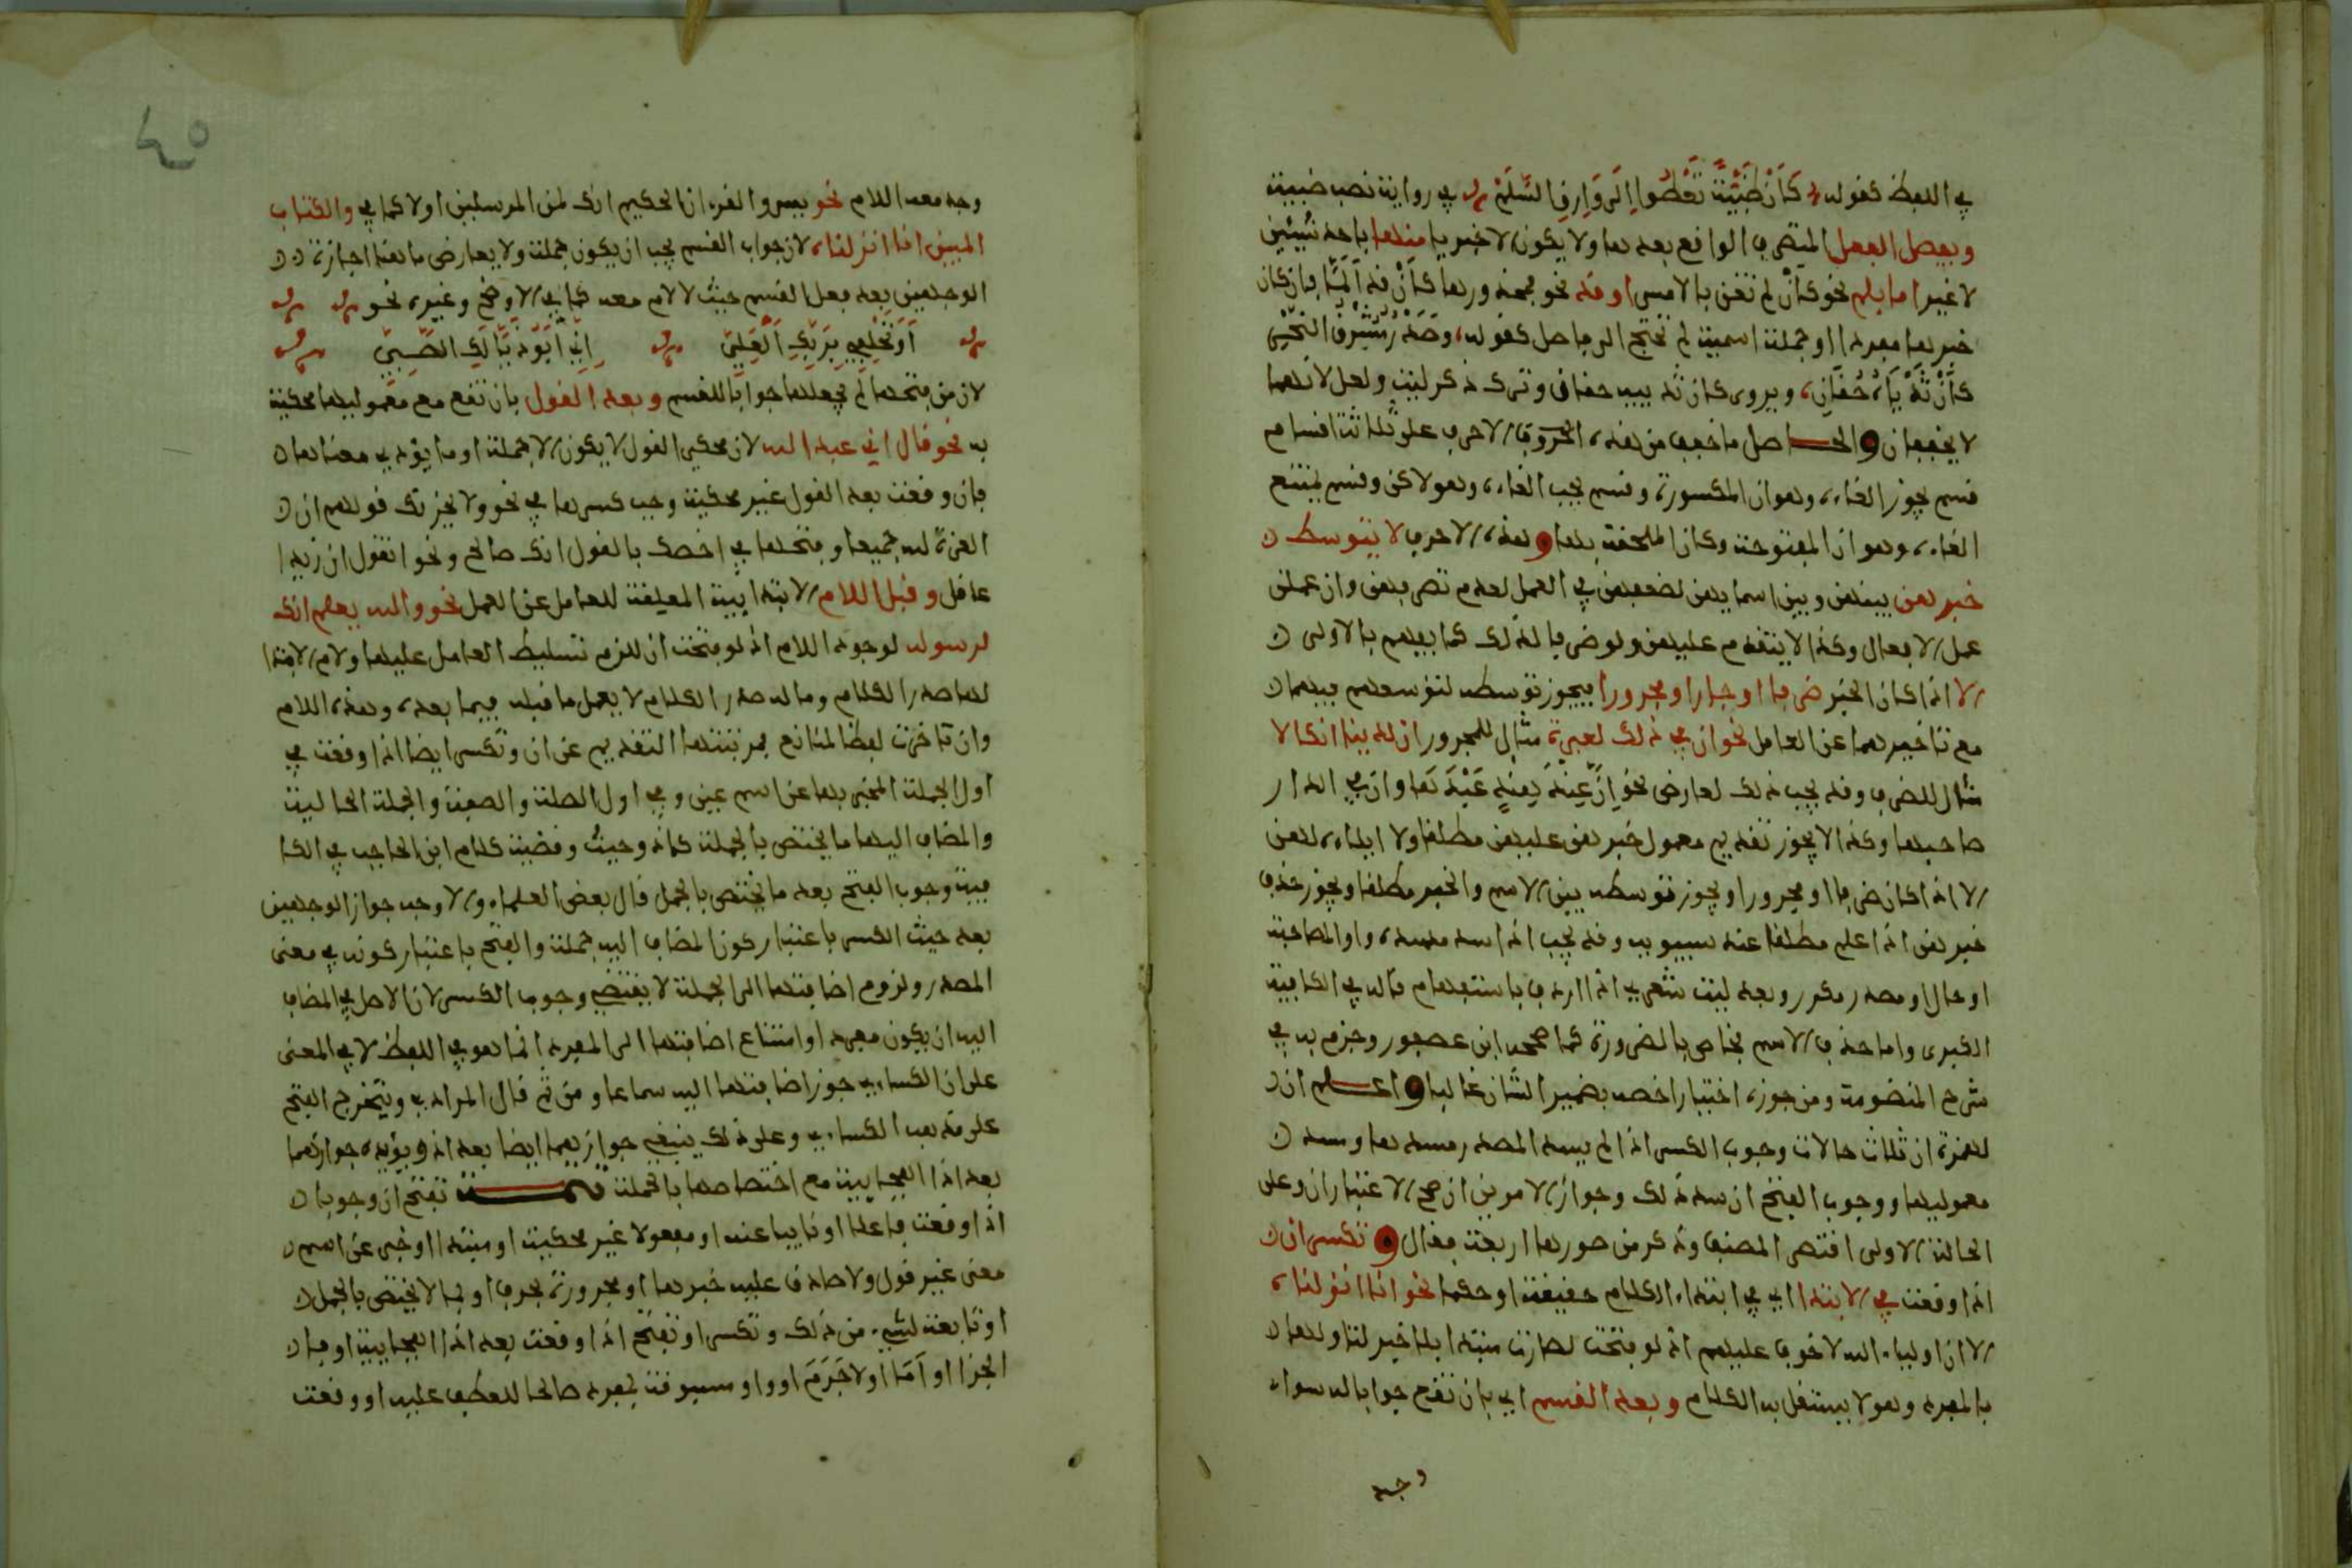 في اللفظ كقوله كَأَنْ ظَبْيَةً تَعْطُوا اِلَى وَارِقِ السَّلَمْ في رواية نصب ظبية
ويفصل الفعل المتصرف الواقع بعدها ولا يكون الا خبريا منها باحد شيئين
لا غير اما بلم نحو كأن لم تغن بالامس او قد نحو فمحذورها كأن قد ألمّا فان كان
خبرها مفردا او جملة اسمية لم تحتج الى فاصل كقوله، وصدر مشرق النحر
كأن ثدياه حقان، ويروى كان ثدييه حقان وترك ذكر ليت ولعل لانهما
لا يخففان والحاصل ما خفف من هذه الحروف الاحرف على ثلاثة اقسام
قسم يجوز الغاءه وهو ان المكسورة وقسم يجب الغاءه وهو لاكن وقسم يمتنع
الغاءه وهو ان المفتوحة وكان الملحقة بها وهذه الاحرف لا يتوسط
خبرهن بينهن وبين اسمايهن لضعفهن في العمل لعدم تصرفهن وان عملن
عمل الافعال وكذا لا يتقدم عليهن ولو ضرفا لذلك كما يفهم بالاولى
الا اذا كان الخبر ضرفا او جارا ومجرورا فيجوز توسطه لتوسعهم فيهما
مع تاخيرهما عن العامل نحو ان في ذلك لعبرة مثال للمجرور ان لدينا انكالا
مثال للضرف وقد يجب ذلك لعارض نحو اِنَّ عِنْدَ هِنْدٍ عَبْدَهَا وان في الدار
صاحبها وكذا لا يجوز تقديم معمول خبرهن عليهن مطلقا ولا ايلاءه لهن
الا اذا كان ضرفا او مجرورا ويجوز توسطه بين الاسم والخبر مطلقا ويجوز حذف
خبرهن اذا علم مطلقا عند سيبويه وقد يجب اذا سد مسده واو المصاحبة
او حال او مصدر مكرر وبعد ليت شعري اذا اردف باستفهام قاله في الكافية
الكبرى واما حذف الاسم فخاص بالضرورة كما صححه ابن عصفور وجزم به في
شرح المنضومة ومن جوزه اختيارا خصه بضمير الشان غالبا واعلم ان
لهمزة ان ثلاث حالات وجوب الكسر اذا لم يسد المصدر مسدها ومسد
معموليها ووجوب الفتح ان سد ذلك وجواز الامرين ان صح الاعتباران وعلى
الحالة الاولى اقتصر المصنف وذكر من صورها اربعة فقال وتكسر ان
اذا وقعت في الابتدا اي في ابتداء الكلام حقيقة او حكما نحو انا انزلناه
الا ان اولياء الله لا خوف عليهم اذ لو فتحت لصارت مبتدا بلا خبر لتاولها
بالمفرد وهو لا يستقل به الكلام وبعد القسم اي بان تقع جوابا له سواء
وجد
٤٥
وجد معه اللام نحو يس والقرءان الحكيم انك لمن المرسلين او لا كما في والكتاب
المبين انا انزلناه لان جواب القسم يجب ان يكون جملة ولا يعارض ما هنا اجازة
الوجهين بعد فعل القسم حيث لا لام معه كما في الاوضح وغيره نحو
أَوْ تَحْلِفِي بِرَبِّكِ الْعَلِيِّ اِنِّي أَبُو ذَيَّالِكِ الصَّبِيِّ
لان من فتحها لم يجعلها جوابا للقسم وبعد القول بان تقع مع معموليها محكية
به نحو قال اني عبد الله لان محكي القول لا يكون الا جملة او ما يؤدي معناها
فان وقعت بعد القول غير محكية وجب كسرها في نحو ولا يحزنك قولهم ان
العزة لله جميعا وفتحها في اخصك بالقول انك صالح ونحو اتقول ان زيدا
عاقل وقبل اللام الابتدايية المعلقة للعامل عن العمل نحو والله يعلم انك
لرسوله لوجود اللام اذ لو فتحت ان للزم تسليط العامل عليها ولام الابتدا
لها صدر الكلام وما له صدر الكلام لا يعمل ما قبله فيما بعده وهذه اللام
وان تاخرت لفظا لمانع فمرتبتها التقديم عن ان وتكسر ايضا اذا وقعت في
اول الجملة المخبر بها عن اسم عين وفي اول الصلة والصفة والجملة الحالية
والمضاف اليها ما يختص بالجملة كاذ وحيث وقضية كلام ابن الحاجب في الكا
فية وجوب الفتح بعد ما يختص بالجمل قال بعض العلماء والاوجه جواز الوجهين
بعد حيث الكسر باعتبار كون المضاف اليه جملة والفتح باعتبار كونه في معنى
المصدر ولزوم اضافتها الى الجملة لا يقتضي وجوب الكسر لان الاصل في المضاف
اليه ان يكون مفردا وامتناع اضافتها الى المفرد انما هو في اللفظ لا في المعنى
على ان الكسايي جوز اضافتها اليه سماعا ومن ثم قال المرادي ويتخرج الفتح
على مذهب الكسايي وعلى ذلك ينبغي جوازهما ايضا بعد اذ ويؤيده جوازهما
بعد اذا الفجايية مع اختصاصها بالجملة تتمة تفتح ان وجوبا
اذا وقعت فاعلا او نايبا عنه او مفعولا غير محكية او مبتدا او خبر عن اسم
معنى غير قول ولا صادق عليه خبرها او مجرورة بحرف او بما لا يختص بالجمل
او تابعة لشيء من ذلك وتكسر او تفتح اذا وقعت بعد اذا الفجايية او فا
الجزا او اَمَا او لا جَرَمَ او واو مسبوقة بمفرد صالحا للعطف عليه او وقعت